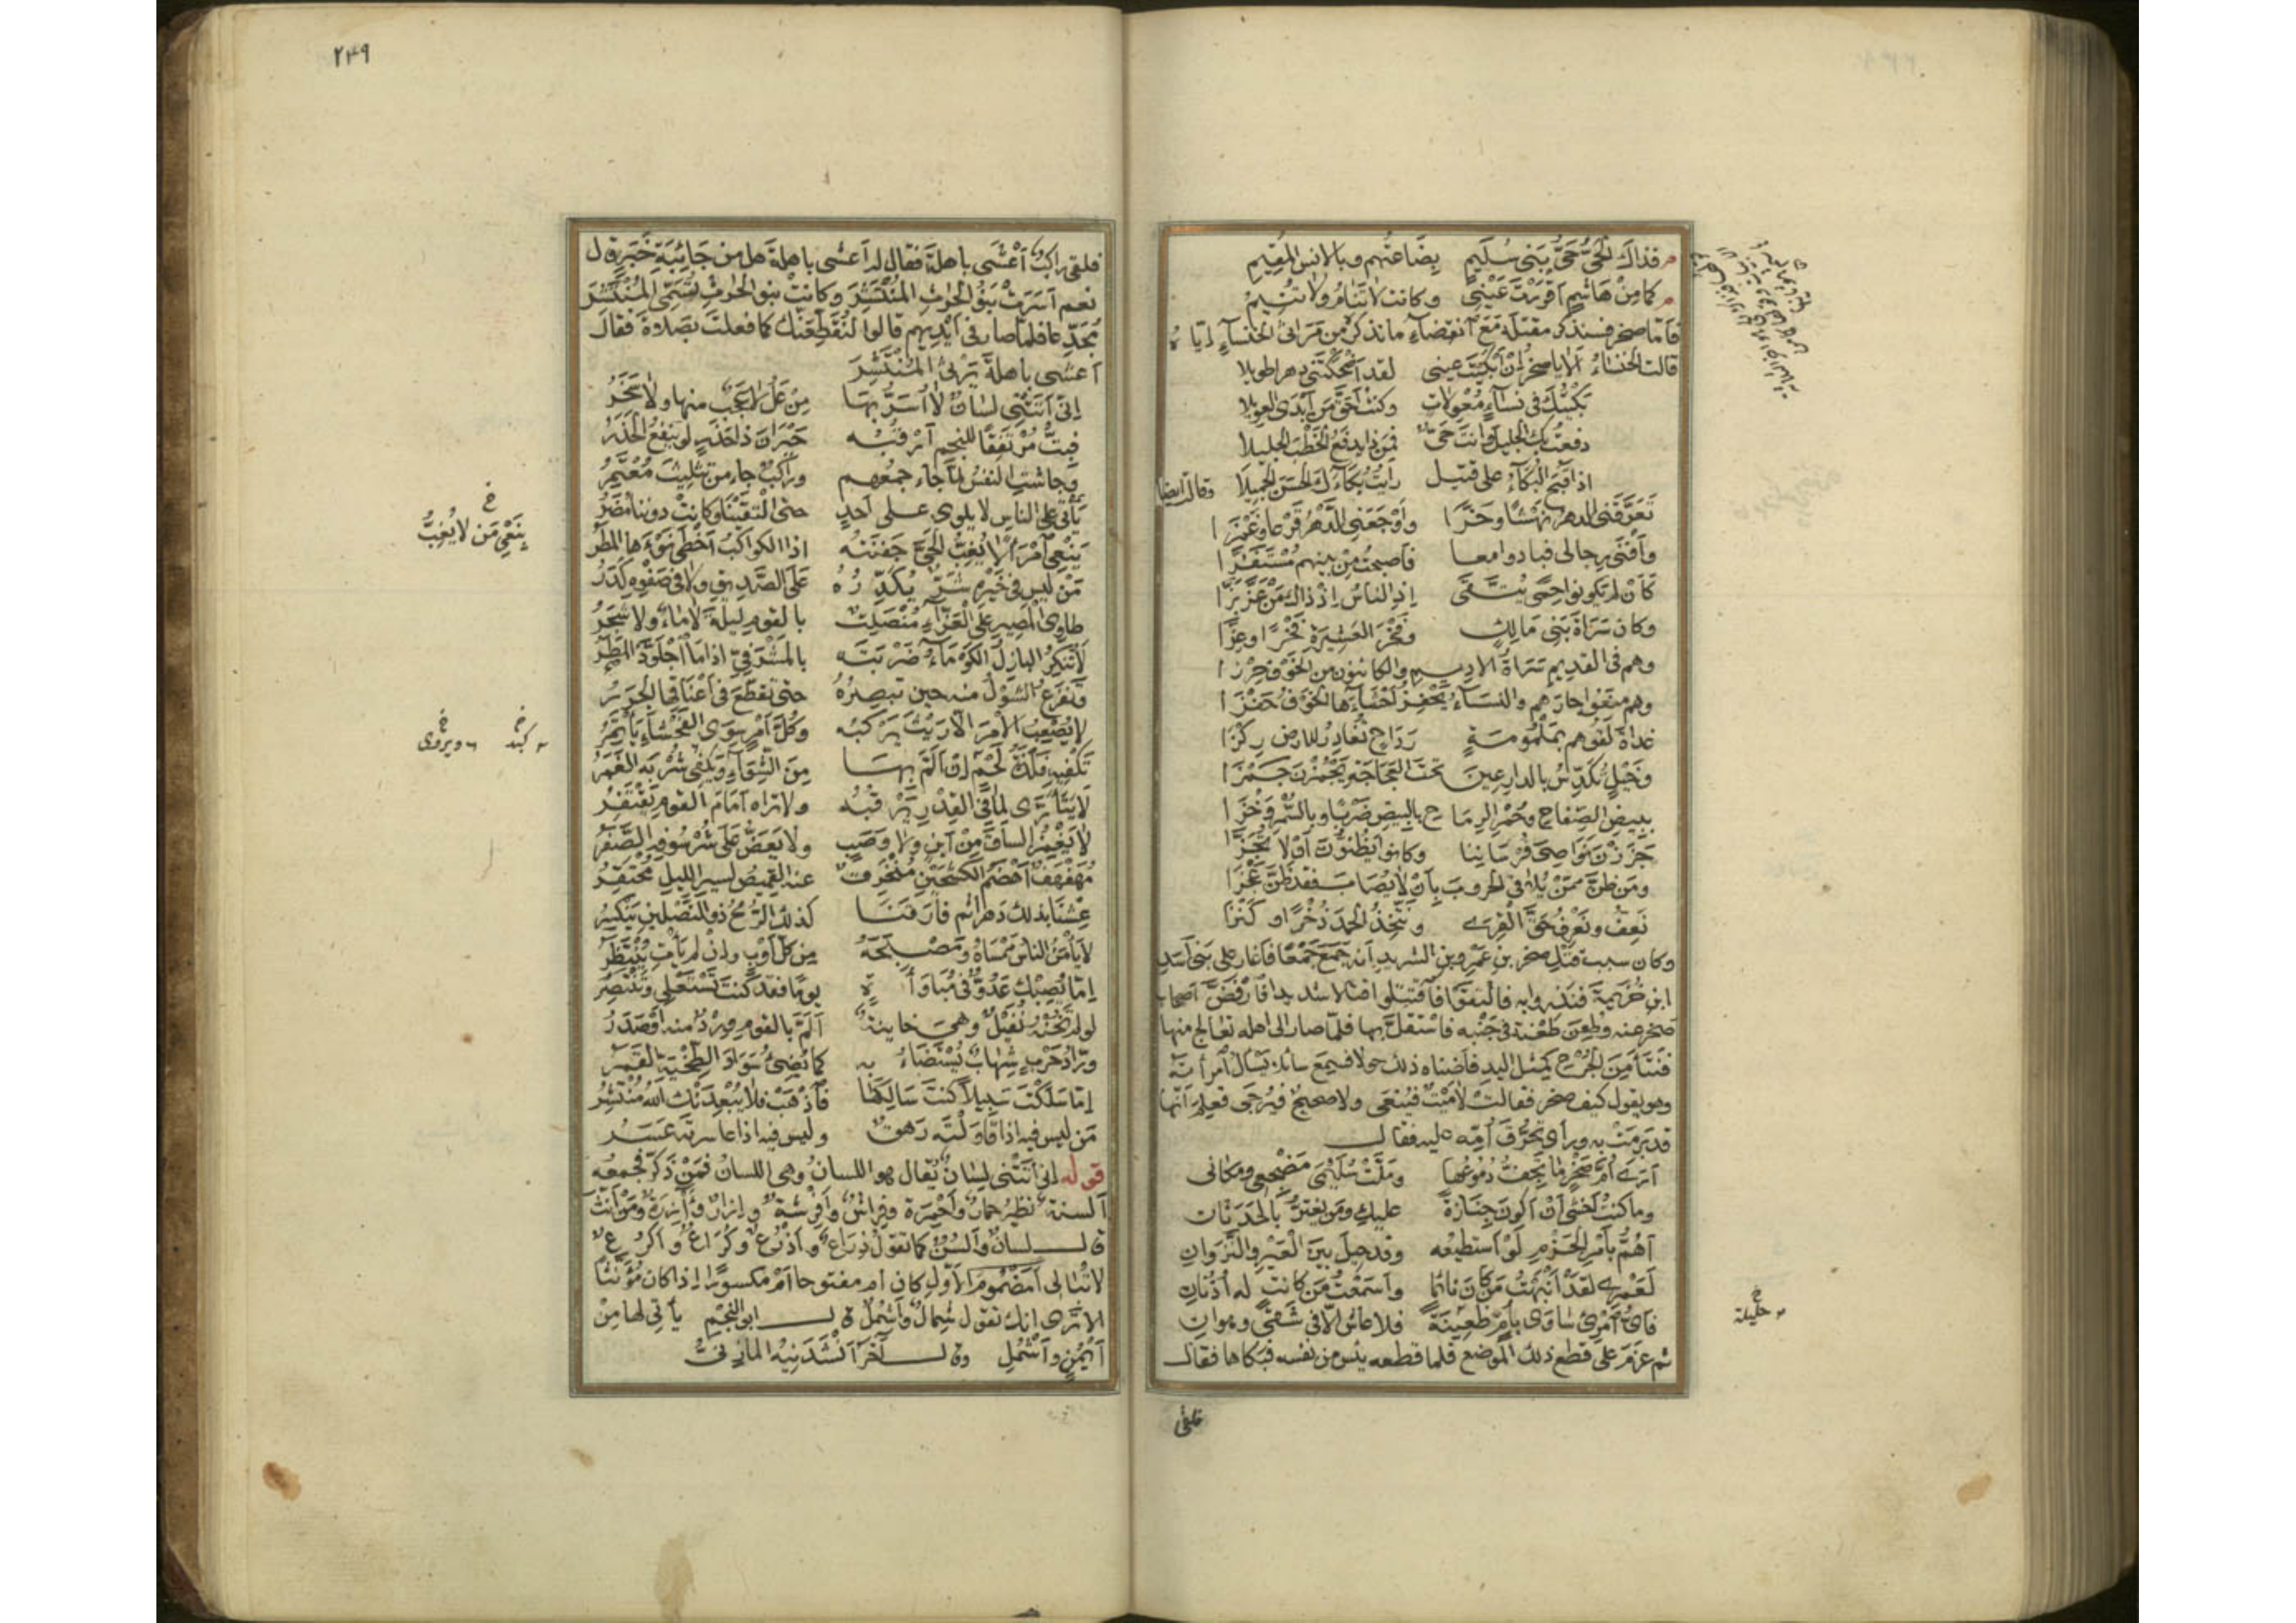 فذاك الحى حى بنى سليم بضاعنهم وبالانس المقيم
كما من هاشم اقررت عينى وكانت لا تنام ولا تنيم
فاما صخر فسنذكر مقتله مع انقضاء ما نذكر من مراثى الخنساء اياه
قالت الخنساء الا يا صخر ان ابكيت عينى لقد اضحكتنى دهرا طويلا
بكيتك فى نساء معولات وكنت احق من ابدى العويلا
دفعت بك الجليل وانت حى فمن ذا يدفع الخطب الجليلا
اذا قبح البكاء على قتيل رايت بكاءك الحسن الجميلا وقالت ايضا
تعرقنى الدهر نهشا وحزا واوجعنى الدهر قرعا وغمزا
وافنى رجالى فبادوا معا فاصبحت من بينهم مستفزا
كان لم يكونوا حمى يتقى اذ الناس اذ ذاك من عز بزا
وكان سراة بنى مالك وفخر العشيرة فخرا وعزا
وهم فى القديم سراة الاديم والكائنون من الخوف حرزا
وهم منعوا جارهم والنساء يحفز احشاءها الخوف حفزا
غداة لقوهم بملمومة رداح تغادر للارض ركزا
وخيل تكدس بالدارعين تحت العجاجة يجمزن جمزا
ببيض الصفاح وسمر الرماح بالبيض ضربا وبالسمر وخزا
جززنا نواصى فرسانها وكانوا يظنون ان لا تجزا
ومن ظن ممن يلاقى الحروب بان لا يصاب فقد ظن عجزا
نعف ونعرف حق القرى ونتخذ الحمد ذخرا وكنزا
وكان سبب قتل صخر بن عمرو بن الشريد انه جمع جمعا فاغار على بنى اسد
ابن خزيمة فنذروا به فالتقوا فاقتتلوا قتالا شديدا فارفض اصحاب
صخر عنه وطعن طعنة فى جنبه فاستقل بها فلما صار الى اهله تعالج منها
فنتا من الجرح كمثل اليد فاضناه ذلك حولا فسمع سائلا يسال امراته
وهو يقول كيف صخر فقالت لا ميت فينعى ولا صحيح فيرجى فعلم انها
قد برمت به وراى تحرق امه عليه فقال
ارى ام صخر ما تجف دموعها وملت سليمى مضجعى ومكانى
وما كنت اخشى ان اكون جنازة عليك ومن يغتر بالحدثان
اهم بامر الحزم لو استطيعه وقد حيل بين العير والنزوان
لعمرى لقد انبهت من كان نائما واسمعت من كانت له اذنان
فاى امرئ ساوى بام ظعينة فلا عاش الا فى شقى وهوان
خ
حليلة
ثم عزم على قطع ذلك الموضع فلما قطعه يئس من نفسه فبكاها فقال
فلقى
٢٤٩
فلقى راكب اعشى باهلة فقال له اعشى باهلة هل من جائبة خبر قال
نعم اسرت بنو الحارث المنتشر وكانت بنو الحارث تسمى المنتشر
مجدعا فلما صار فى ايديهم قالوا لنقطعنك كما فعلت بصلاءة فقال
اعشى باهلة يرثى المنتشر
انى اتتنى لسان لا اسر بها من عل لا عجب منها ولا سخر
فبت مرتفقا للنجم ارقبه حيران ذا حذر لو ينفع الحذر
وجاشت النفس لما جاء جمعهم وراكب جاء من تثليث معتمر
ياتى على الناس لا يلوى على احد حتى التقينا وكانت دوننا مضر
خ
ينعى من لا يغب
ينعى امرا لا تغب الحى جفنته اذا الكواكب اخطى نوءها المطر
من ليس فى خيره شر يكدره على الصديق ولا فى صفوه كدر
طاوى المصير على العزاء منصلت بالقوم ليلة لا ماء ولا شجر
لا تنكر البازل الكوماء ضربته بالمشرفى اذا ما اجلوذ المطر
وتفزع الشول منه حين تبصره حتى تقطع فى اعناقها الجرر
لا يصعب الامر الا ريث يركبه وكل امر سوى الفحشاء ياتمر
خ
كبد
خ
ويروى
تكفيه فلذة لحم ان الم بها من الشواء ويكفى شربه الغمر
لا يتارى لما فى القدر يرقبه ولا تراه امام القوم يقتفر
لا يغمز الساق من اين ولا وصب ولا يعض على شرسوفه الصفر
مهفهف اهضم الكشحين منخرق عنه القميص لسير الليل محتقر
عشنا بذلك دهرا ثم فارقنا كذلك الرمح ذو النصلين ينكسر
لا يامن الناس ممساه ومصبحه من كل اوب وان لم يات ينتظر
اما يصبك عدو فى مباواة يوما فقد كنت تستعلى وتنتصر
لو لم تخنه نفيل وهى خاينة الم بالقوم ورد منه او صدر
وراد حرب شهاب يستضاء به كما يضىء سواد الطخية القمر
اما سلكت سبيلا كنت سالكها فاذهب فلا يبعدنك الله منتشر
من ليس فيه اذا قاولته رهق وليس فيه اذا عاسرته عسر
قوله انى اتتنى لسان يقال هو اللسان وهى اللسان فمن ذكر فجمعه
السنة نظير حمار واحمرة وفراش وافرشة وازار وآزرة ومن انث
قال لسان والسن كما تقول ذراع واذرع وكراع واكرع
لا تبالى امضموم الاول كان ام مفتوحا ام مكسورا اذا كان مؤنثا
الا ترى انك تقول شمال واشمل قال ابو النجم ياتى لها من
ايمن واشمل وقال آخر انشدنيه المازنى